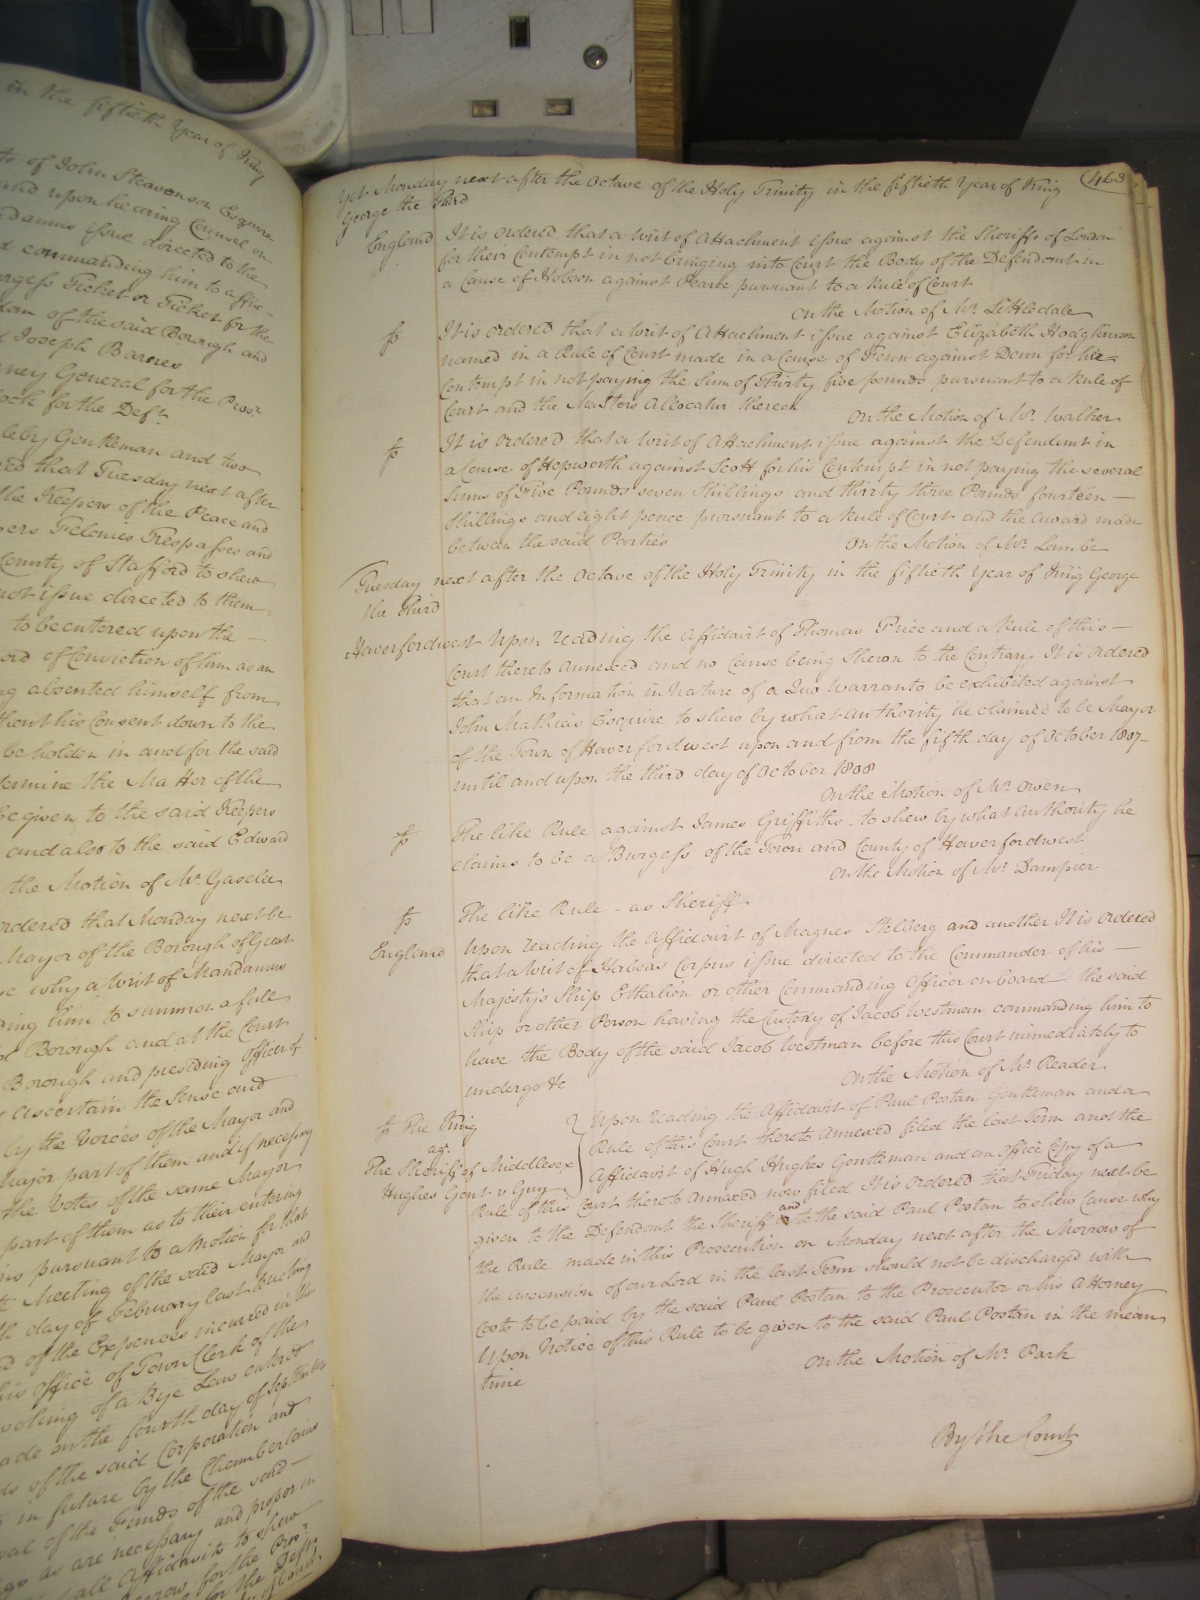 in the fiftieth Year of King
of John Steavenson Esquire
and upon hearing Counsel on
issue directed to the
commanding him to affix
Ticket or Ticket for the
of the said Borough and
Joseph Barnes
General for the Prosr.
for the Deft.
Gentleman and two
that Tuesday next after
the Keepers of the Peace and
Felonies Trespasses and
County of Stafford to shew
not issue directed to them
to be entered upon the
of Conviction of him as an
absented himself from
his Consent down to the
be holden in and for the said
the Matter of the
be given to the said Keepers
and also to the said Edward
the Motion of Mr. Gaselee
ordered that Monday next be
Mayor of the Borough of Great
why a Writ of Mandamus
him to summon a full
Borough and at the Court
Borough and presiding Officer of
ascertain the Sense and
by the Voices of the Mayor and
major part of them and if necessary
the Votes of the same Mayor
part of them as to their entering
pursuant to a Motion for that
Meeting of the said Mayor and
day of February last
of the Expences incurred in the
his Office of Town Clerk of the
of a Bye Law
made on the fourth day of September
of the said Corporation and
in future by the Chamberlains
of the Funds of the said
as are necessary and proper in
all Affidavits to shew
for the Prosr.
for the Deft.
468
Yet Monday next after the Octave of the Holy Trinity in the fiftieth Year of King
George the Third
England It is ordered that a Writ of Attachment issue against the Sheriffs of London
for their Contempt in not bringing into Court the Body of the Defendant in
a Cause of Hobson against Pearse pursuant to a Rule of Court
On the Motion of Mr. Littledale
It is ordered that a Writ of Attachment issue against Elizabeth Hodgkinson
named in a Rule of Court made in a Cause of Fenn against Denn for his
Contempt in not paying the Sum of Thirty five pounds pursuant to a Rule of
Court and the Masters Allocatur thereon
On the Motion of Mr. Walker
It is ordered that a Writ of Attachment issue against the Defendant in
a Cause of Hepworth against Scott for his Contempt in not paying the several
Sums of Five Pounds seven Shillings and thirty three Pounds fourteen
Shillings and eight pence pursuant to a Rule of Court and the Award made
between the said Parties
On the Motion of Mr. Lambe
Tuesday next after the Octave of the Holy Trinity in the fiftieth Year of King George
the Third
Haverfordwest Upon reading the Affidavit of Thomas Price and a Rule of this
Court thereto annexed and no Cause being Shewn to the Contrary It is Ordered
that an Information in Nature of a Quo Warranto be exhibited against
John Mathias Esquire to shew by what Authority he claimed to be Mayor
of the Town of Haverfordwest upon and from the fifth day of October 1807
until and upon the third day of October 1808
On the Motion of Mr. Owen
The like Rule against James Griffiths to shew by what Authority he
claims to be a Burgess of the Town and County of Haverfordwest
On the Motion of Mr. Dampier
The like Rule as Sheriff
England Upon reading the Affidavit of Magnes Stelberg and another It is Ordered
that a Writ of Habeas Corpus issue directed to the Commander of his
Majesty's Ship Ethalion or other Commanding Officer on board the said
Ship or other Person having the Custody of Jacob Westman commanding him to
have the Body of the said Jacob Westman before this Court immediately to
undergo &c
On the Motion of Mr. Reader
The King
agt.
The Sheriff of Middlesex
Hughes Gent. v Guy
Upon reading the Affidavit of Paul Postan Gentleman and a
Rule of this Court thereto annexed filed the last Term and the
Affidavit of Hugh Hughes Gentleman and an Office Copy of a
Rule of this Court thereto annexed now filed It is Ordered that Friday next be
given to the Defendant the Sheriff and to the said Paul Postan to shew Cause why
the Rule made in this Prosecution on Monday next after the Morrow of
the Ascension of our Lord in the last Term should not be discharged with
Costs to be paid by the said Paul Postan to the Prosecutor or his Attorney
Upon Notice of this Rule to be given to the said Paul Postan in the mean
time
On the Motion of Mr. Park
By the Court